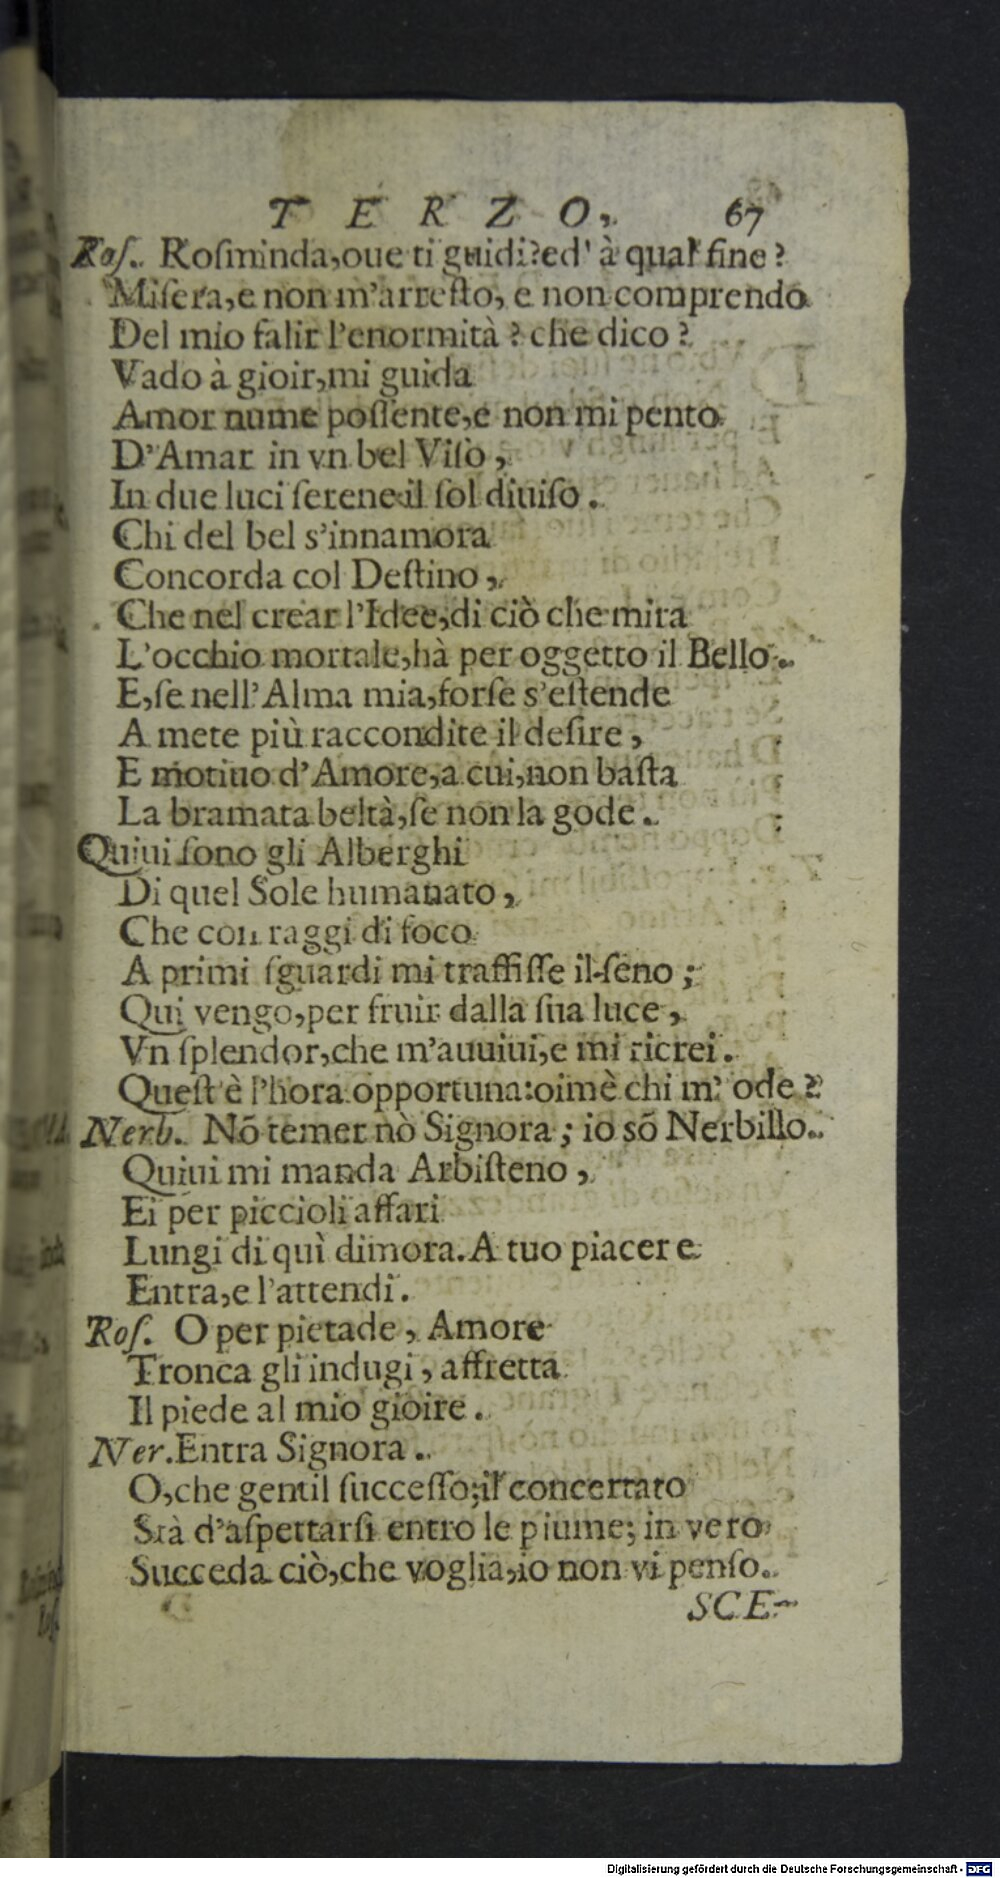 TERZO, 67
Roſ. Roſminda,oue ti guidi?ed' à qual fine?
Miſera,e non m'arreſto, e non comprendo
Del mio falir l'enormità? che dico?
Vado à gioir,mi guida
Amor nume poſſente,e non mi pento
D'Amar in vn bel Viſo,
In due luci ſerene il ſol diuiſo.
Chi del bel s'innamora
Concorda col Deſtino,
Che nel crear l'Idee,di ciò che mira
L'occhio mortale,hà per oggetto il Bello.
E,ſe nell'Alma mia,forſe s'eſtende
A mete più raccondite il deſire,
E motiuo d'Amore,a cui,non baſta
La bramata beltà,ſe non la gode.
Quiui ſono gli Alberghi
Di quel Sole humanato,
Che con raggi di foco
A primi ſguardi mi traffiſſe il ſeno;
Qui vengo,per fruir dalla ſua luce,
Vn ſplendor,che m'auuiui,e mi ricrei.
Queſt'è l'hora opportuna:oimè chi m' ode?
Nerb. Nõ temer nò Signora; io sõ Nerbillo.
Quiui mi manda Arbiſteno,
Ei per piccioli affari
Lungi di quì dimora. A tuo piacere
Entra,e l'attendi.
Roſ. O per pietade, Amore
Tronca gli indugi, affretta
Il piede al mio gioire.
Ner. Entra Signora.
O,che gentil ſucceſſo;il concertato
Stà d'aſpettarſi entro le piume; in vero
Succeda ciò,che voglia,io non vi penſo.
SCE-
Digitalisierung gefördert durch die Deutsche Forschungsgemeinschaft - DFG